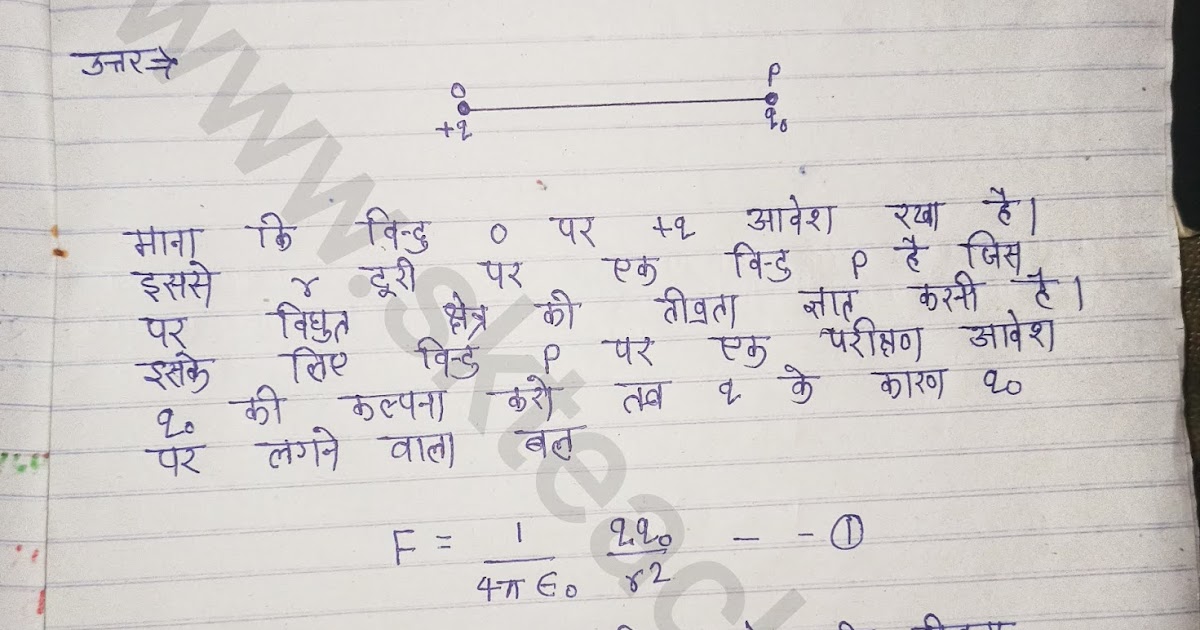 उत्तर→
O P
+q q₀
माना कि विन्दु O पर +q आवेश रखा है।
इससे r दूरी पर एक विन्दु P है जिस
पर विघुत क्षेत्र की तीव्रता ज्ञात करनी है।
इसके लिए विन्दु P पर एक परीक्षण आवेश
q₀ की कल्पना करो तब q के कारण q₀
पर लगने वाला बल
F = 1/4π∈₀ qq₀/r² - - ①
www.skteach